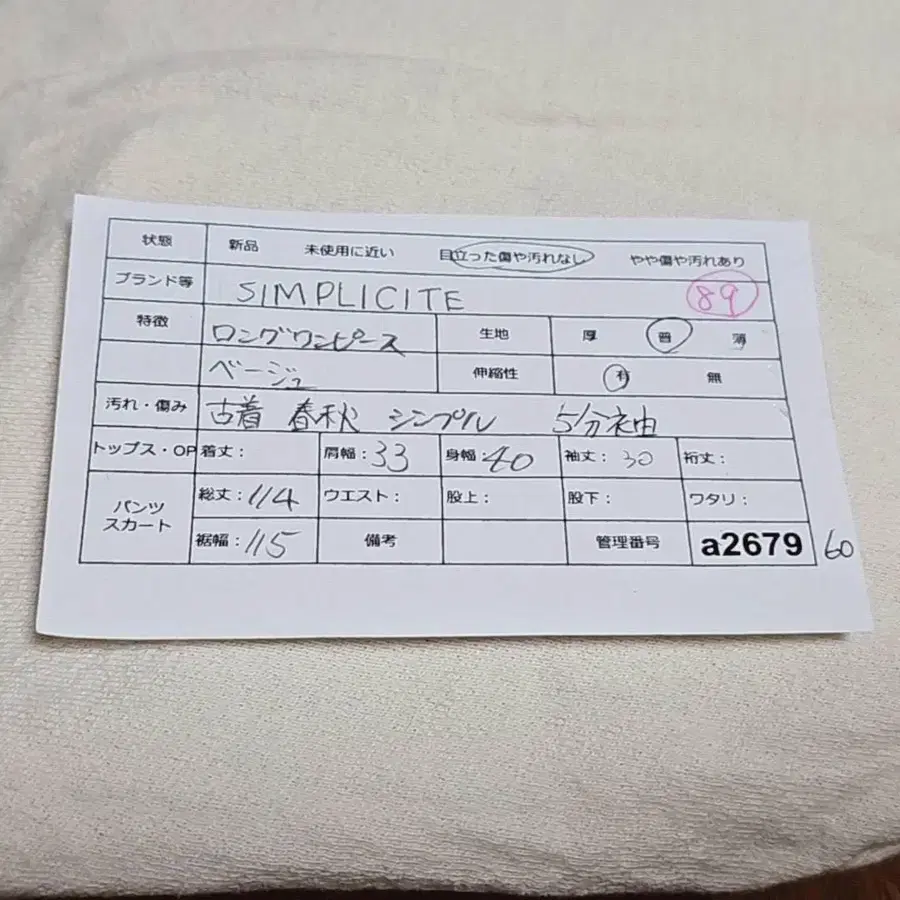 状態 新品 未使用に近い 目立った傷や汚れなし やや傷や汚れあり
ブランド等 SIMPLICITE 89
特徴 ロングワンピース 生地 厚 普 薄
ベージュ 伸縮性 有 無
汚れ・傷み 古着 春秋 シンプル 5分袖
トップス・OP 着丈: 肩幅:33 身幅:40 袖丈:30 裄丈:
パンツ スカート 総丈:114 ウエスト: 股上: 股下: ワタリ:
裾幅:115 備考 管理番号 a2679 60